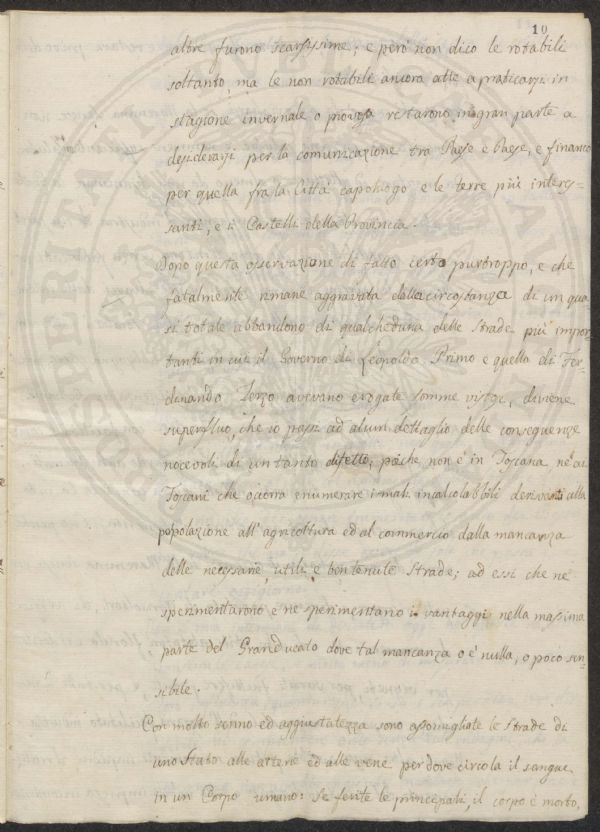 10
altre furono scarsissime; e però non dico le rotabili
soltanto, ma le non rotabili ancora atte a praticarsi in
stagione invernale o piovosa restarono in gran parte a
desiderarsi per la comunicazione tra Paese e Paese, e financo
per quella fra la Città capoluogo e le terre più interes-
santi, e i Castelli della Provincia.
Dopo questa osservazione di fatto certo purtroppo, e che
fatalmente rimane aggravata dalla circostanza di un qua
si totale abbandono di qualcheduna delle Strade più impor
tanti in cui il Governo di Leopoldo Primo e quello di Fer-
dinando Terzo avevano erogate somme vistose, diviene
superfluo, che io passi ad alcun dettaglio delle conseguenze
nocevoli di un tanto difetto; poiche non è in Toscana ne ai
Toscani che occorra enumerare i mali incalcolabbili derivanti alla
popolazione all' agricoltura ed al commercio dalla mancanza
delle necessarie, utili, e ben tenute Strade; ad essi che ne
sperimentarono e ne sperimentano i vantaggi nella massima
parte del Granducato dove tal mancanza o è nulla, o poco sen-
sibile.
Con molto senno ed aggiustatezza sono assomigliate le Strade di
uno Stato alle arterie ed alle vene per dove circola il sangue
in un Corpo umano: se ferite le principali, il corpo è morto,
PROSPERITATI